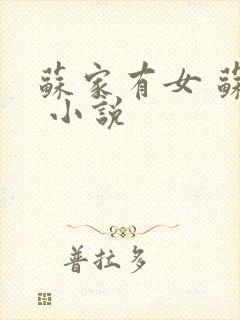 蘇家有女 蘇
小說
普拉多